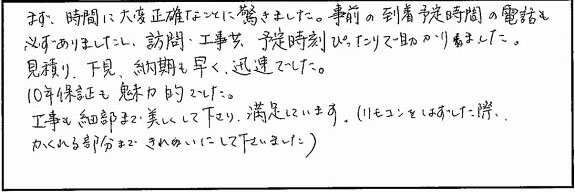 まず、時間に大変正確なことに驚きました。事前の到着予定時間の電話も
必ずありましたし、訪問・工事共、予定時刻ぴったりで助かりました。
見積り、下見、納期も早く、迅速でした。
10年保証も魅力的でした。
工事も細部まで美しくして下さり、満足しています。(リモコンをはずした際、
かくれる部分まできれいにして下さいました)